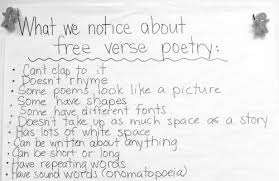 What we notice about
free verse poetry:
• Can't clap to it
• Doesn't rhyme
• Some poems look like a picture
• Some have shapes
• Some have different fonts
• Doesn't take up as much space as a story
• Has lots of white space
• Can be written about anything
• Can be short or long
• Have repeating words
• Have sound words (onomatopoeia)